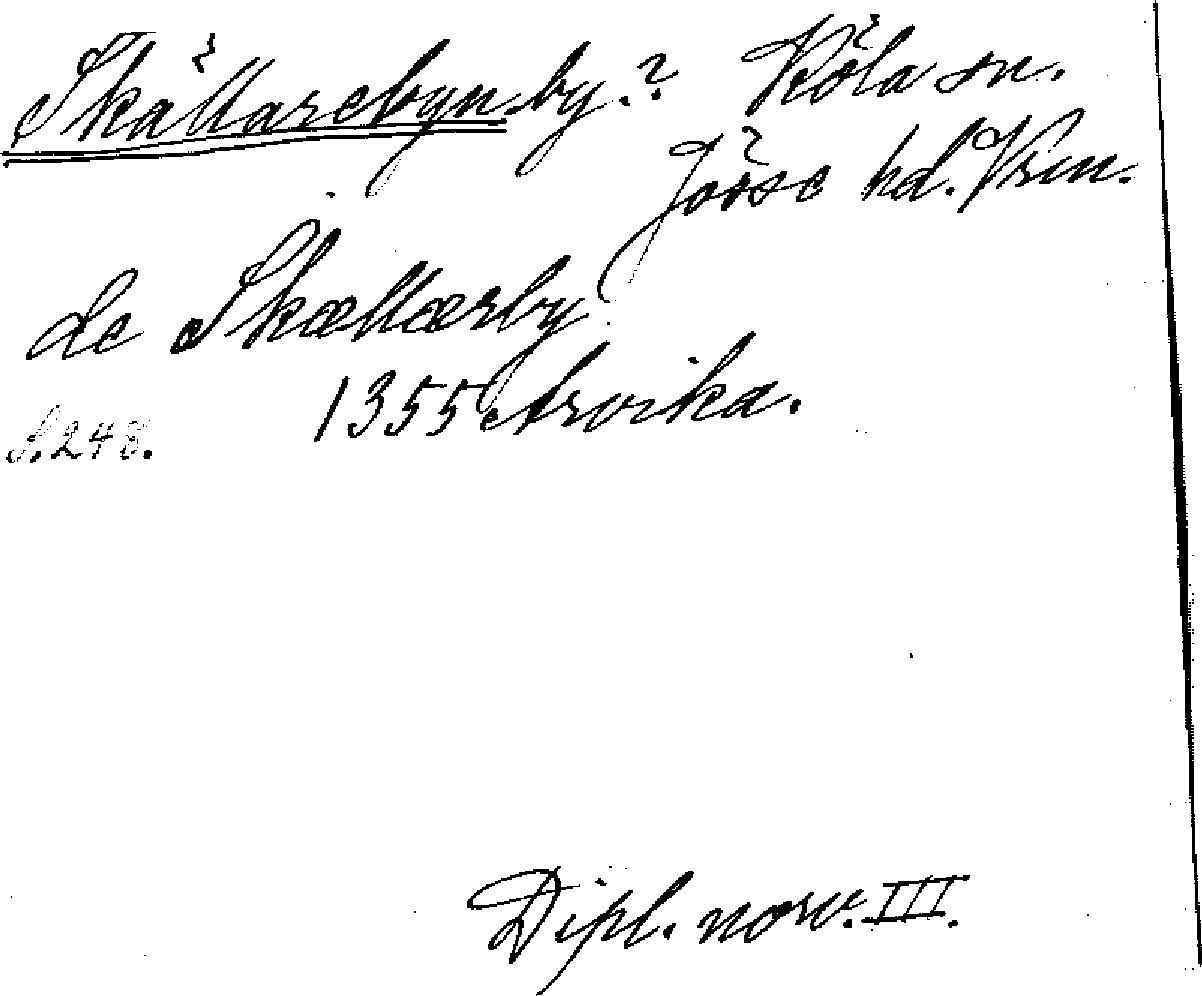 Skällarebyn by.? Köla sn.
Jösse hd. Vrm.
de Skællærby
1355 Arvika.
S. 248.
Dipl. norv. III.